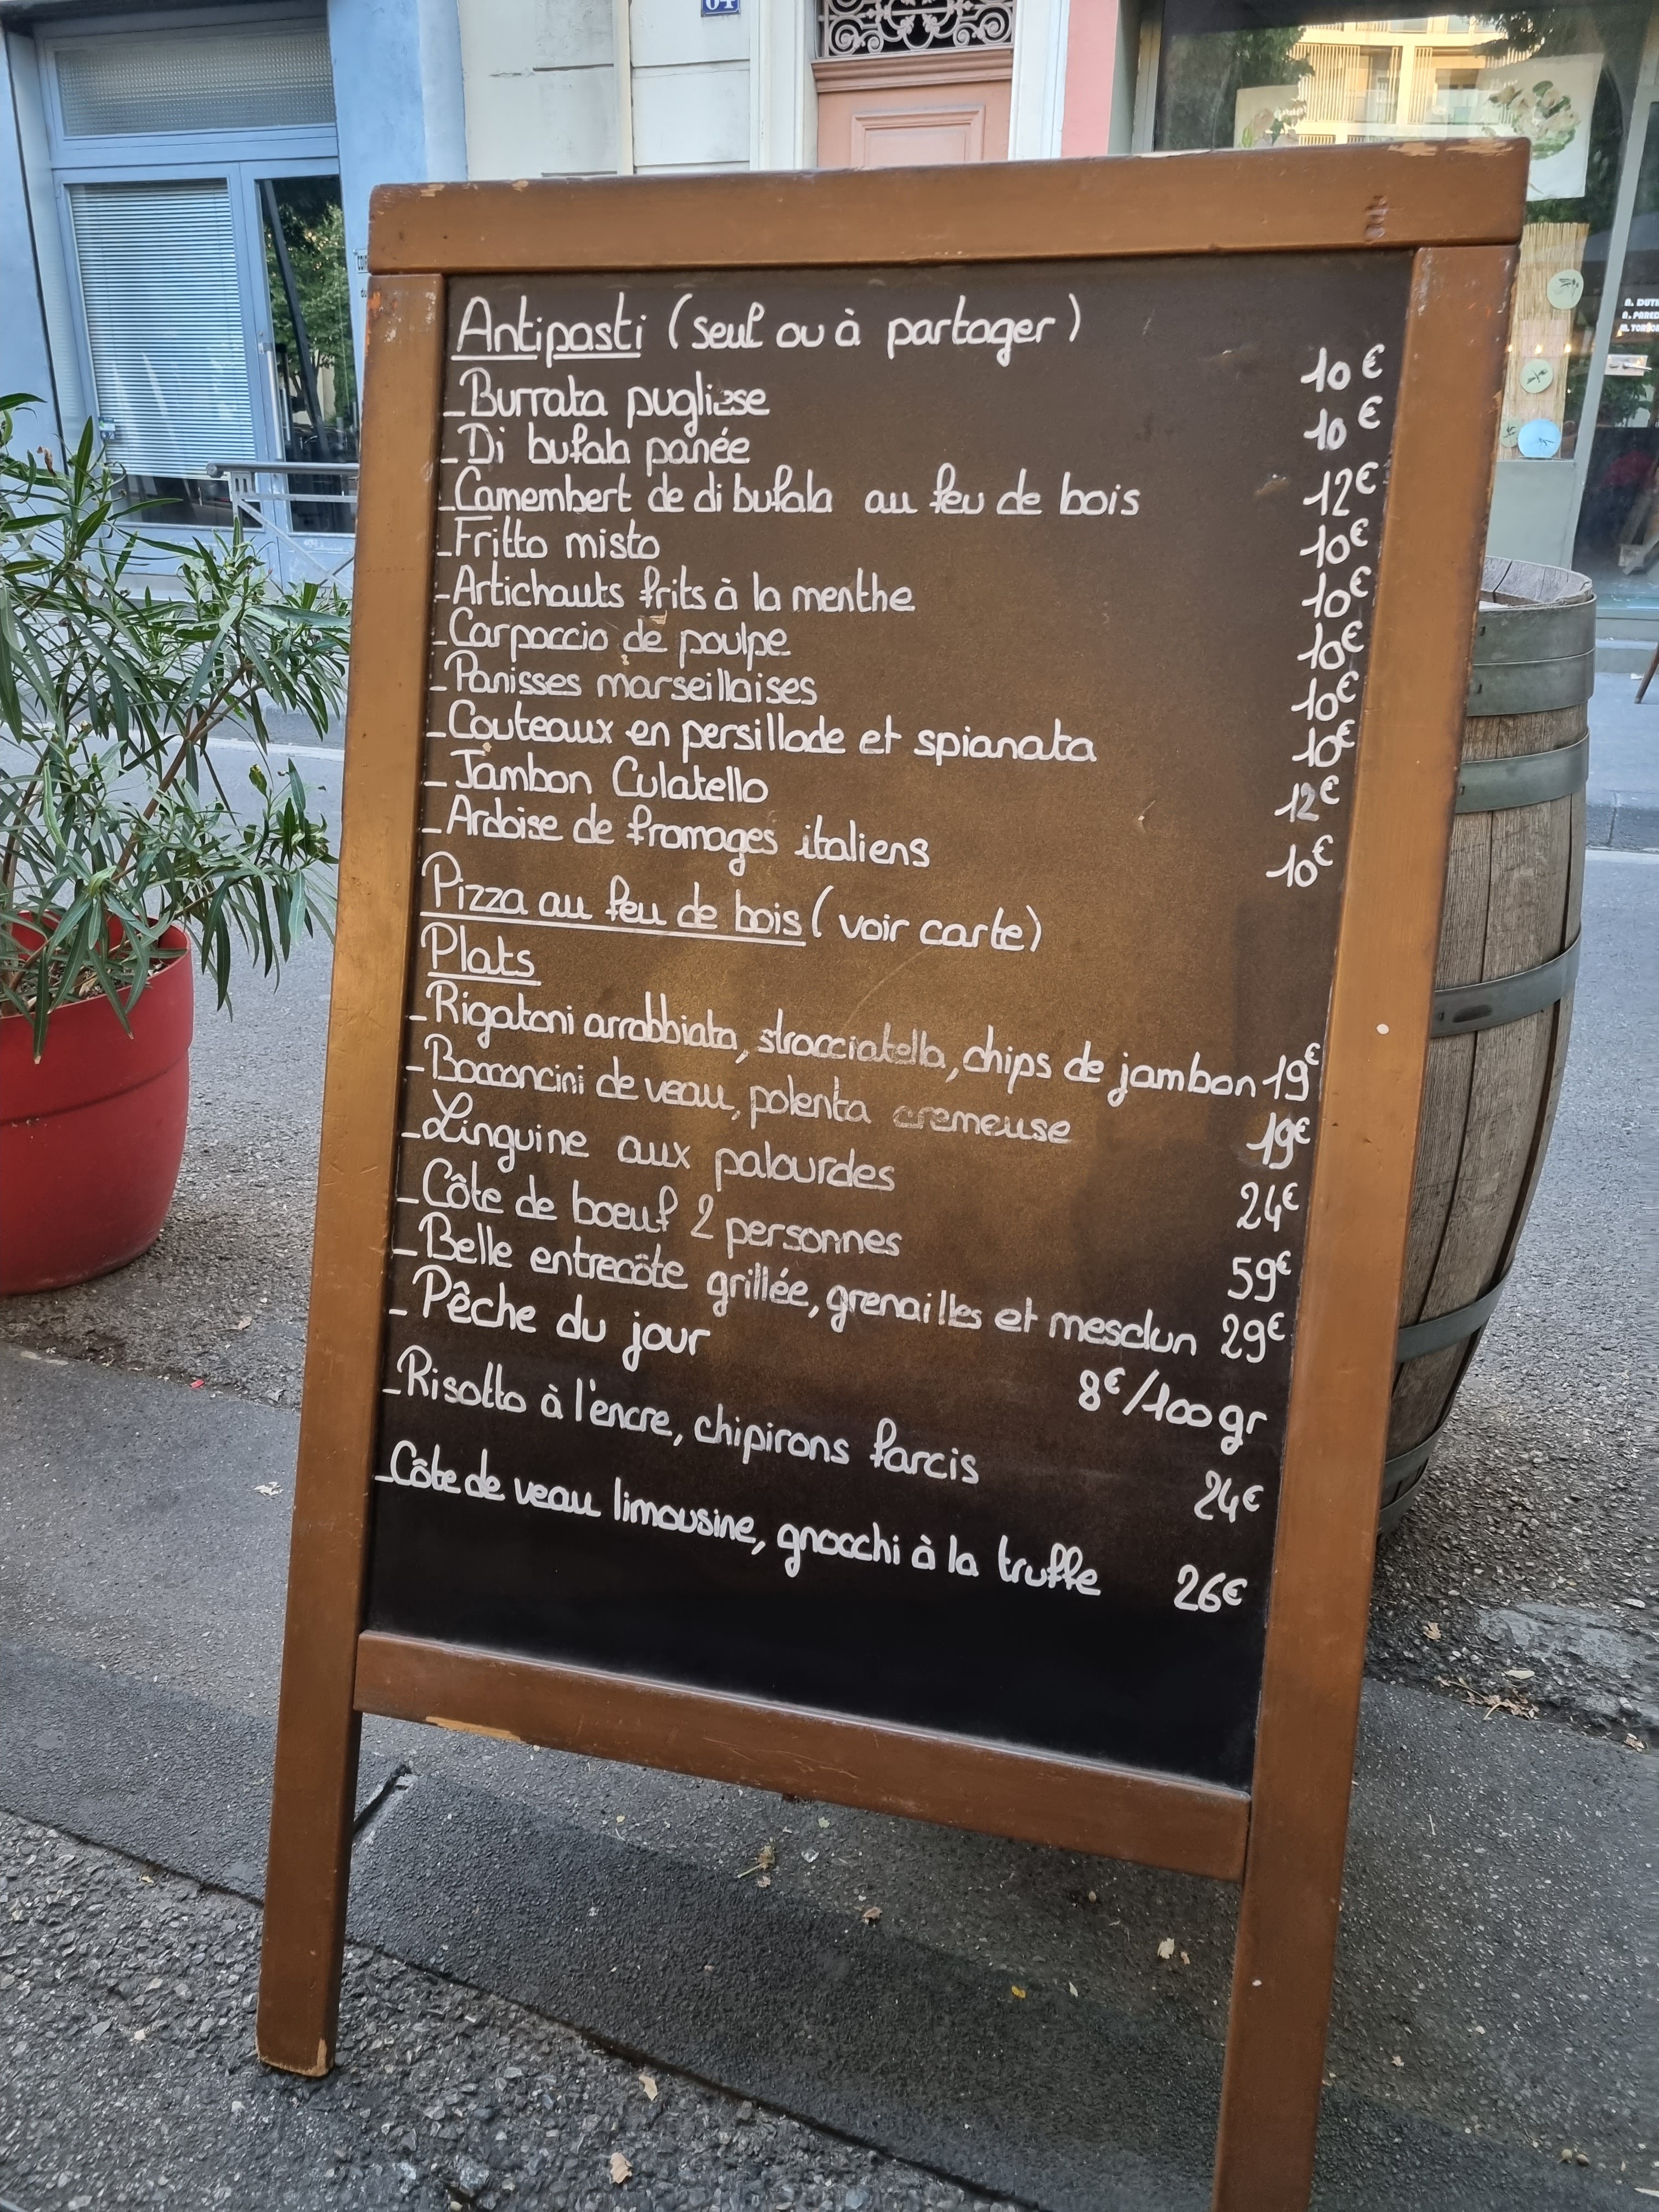 64
Antipasti (seul ou à partager)
_Burrata pugliese 10€
_Di bufala panée 10€
_Camembert de di bufala au feu de bois 12€
_Fritto misto 10€
_Artichauts frits à la menthe 10€
_Carpaccio de poulpe 10€
_Panisses marseillaises 10€
_Couteaux en persillade et spianata 10€
_Jambon Culatello 12€
_Ardoise de fromages italiens 10€
Pizza au feu de bois (voir carte)
Plats
_Rigatoni arrabbiata, stracciatella, chips de jambon 19€
_Bocconcini de veau, polenta cremeuse 19€
_Linguine aux palourdes 24€
_Côte de boeuf 2 personnes 59€
_Belle entrecôte grillée, grenailles et mesclun 29€
_Pêche du jour 8€/100gr
_Risotto à l'encre, chipirons farcis 24€
_Côte de veau limousine, gnocchi à la truffe 26€